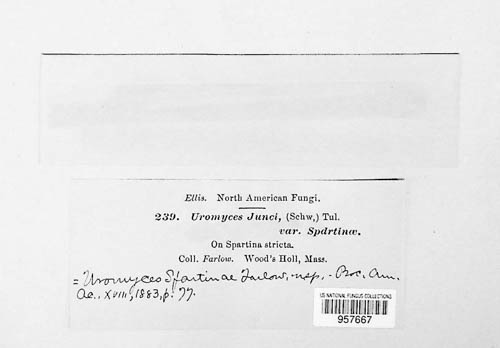 Ellis. North American Fungi.
239. Uromyces Junci, (Schw,) Tul.
var. Spdrtinæ.
On Spartina stricta.
Coll. Farlow. Wood's Holl, Mass.
= Uromyces Spartinae Farlow, n.sp. - Proc. Am.
Ac., XVIII, 1883, p. 77.
US NATIONAL FUNGUS COLLECTIONS
957667